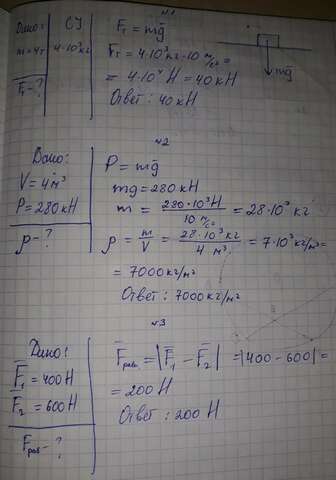 №1
Дано: СИ
m = 4т 4·10³кг
F̅т - ?
F̅т = mg̅
Fт = 4·10³кг·10 м/с² =
= 4·10⁴ Н = 40 кН
Ответ: 40 кН
mg̅
№2
Дано:
V = 4 м³
P = 280 кН
ρ - ?
P = mg̅
mg = 280 кН
m = 280·10³Н / 10 м/с² = 28·10³ кг
ρ = m/V = 28·10³ кг / 4 м³ = 7·10³ кг/м³ =
= 7000 кг/м³
Ответ: 7000 кг/м³
№3
Дано:
F̅₁ = 400 Н
F̅₂ = 600 Н
Fрав - ?
F̅рав = |F̅₁ - F̅₂| = |400 - 600| =
= 200 Н
Ответ: 200 Н